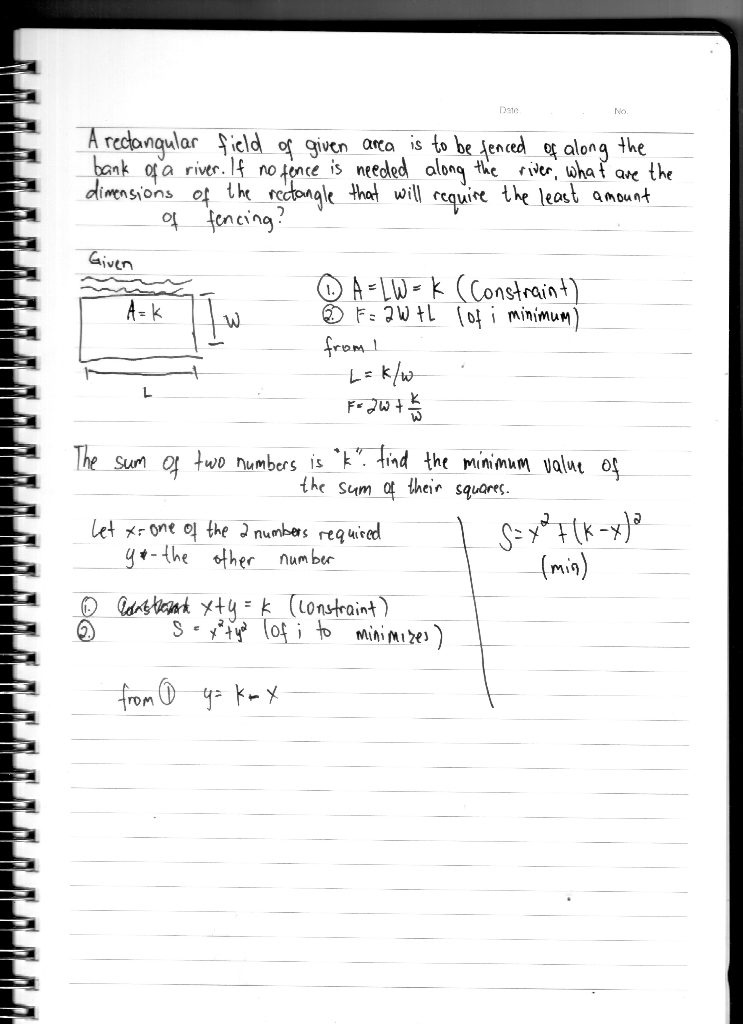 Date. No.
A rectangular field of given area is to be fenced of along the
bank of a river. If no fence is needed along the river, what are the
dimensions of the rectangle that will require the least amount
of fencing?
Given
A = k
W
L
1. A = LW = K (Constraint)
2. F = 2W + L (of i minimum)
from 1
L = K/w
F = 2w + K/w
The sum of two numbers is "k". find the minimum value of
the sum of their squares.
Let x = one of the 2 numbers required
y - the other number
1. x+y = k (constraint)
2. S = x²+y² (of i to minimizes)
from ① y = k - x
S = x² + (k - x)²
(min)